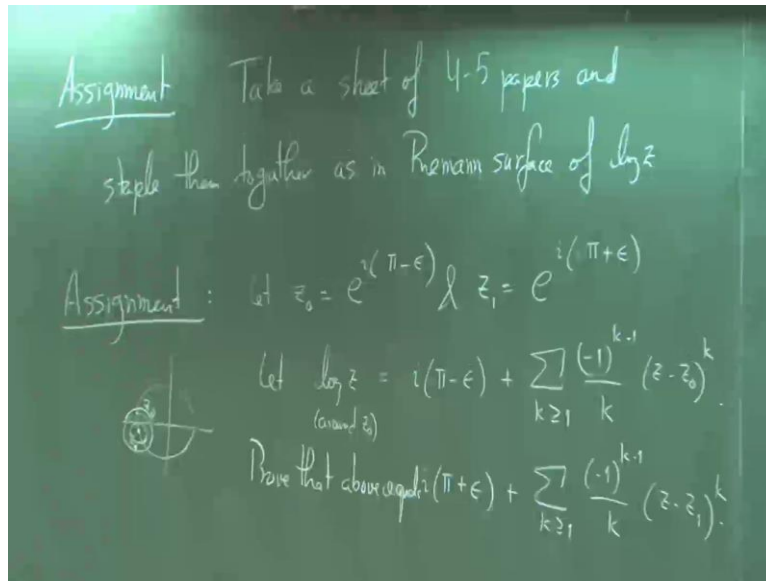 Assignment Take a sheet of 4-5 papers and
staple them together as in Riemann surface of log z
Assignment : Let z₀ = e^{i(π-ε)} & z₁ = e^{i(π+ε)}
Let log z = i(π-ε) + ∑_{k≥1} \frac{(-1)^{k-1}}{k} (z-z₀)^k.
(around z₀)
Prove that above equals i(π+ε) + ∑_{k≥1} \frac{(-1)^{k-1}}{k} (z-z₁)^k.